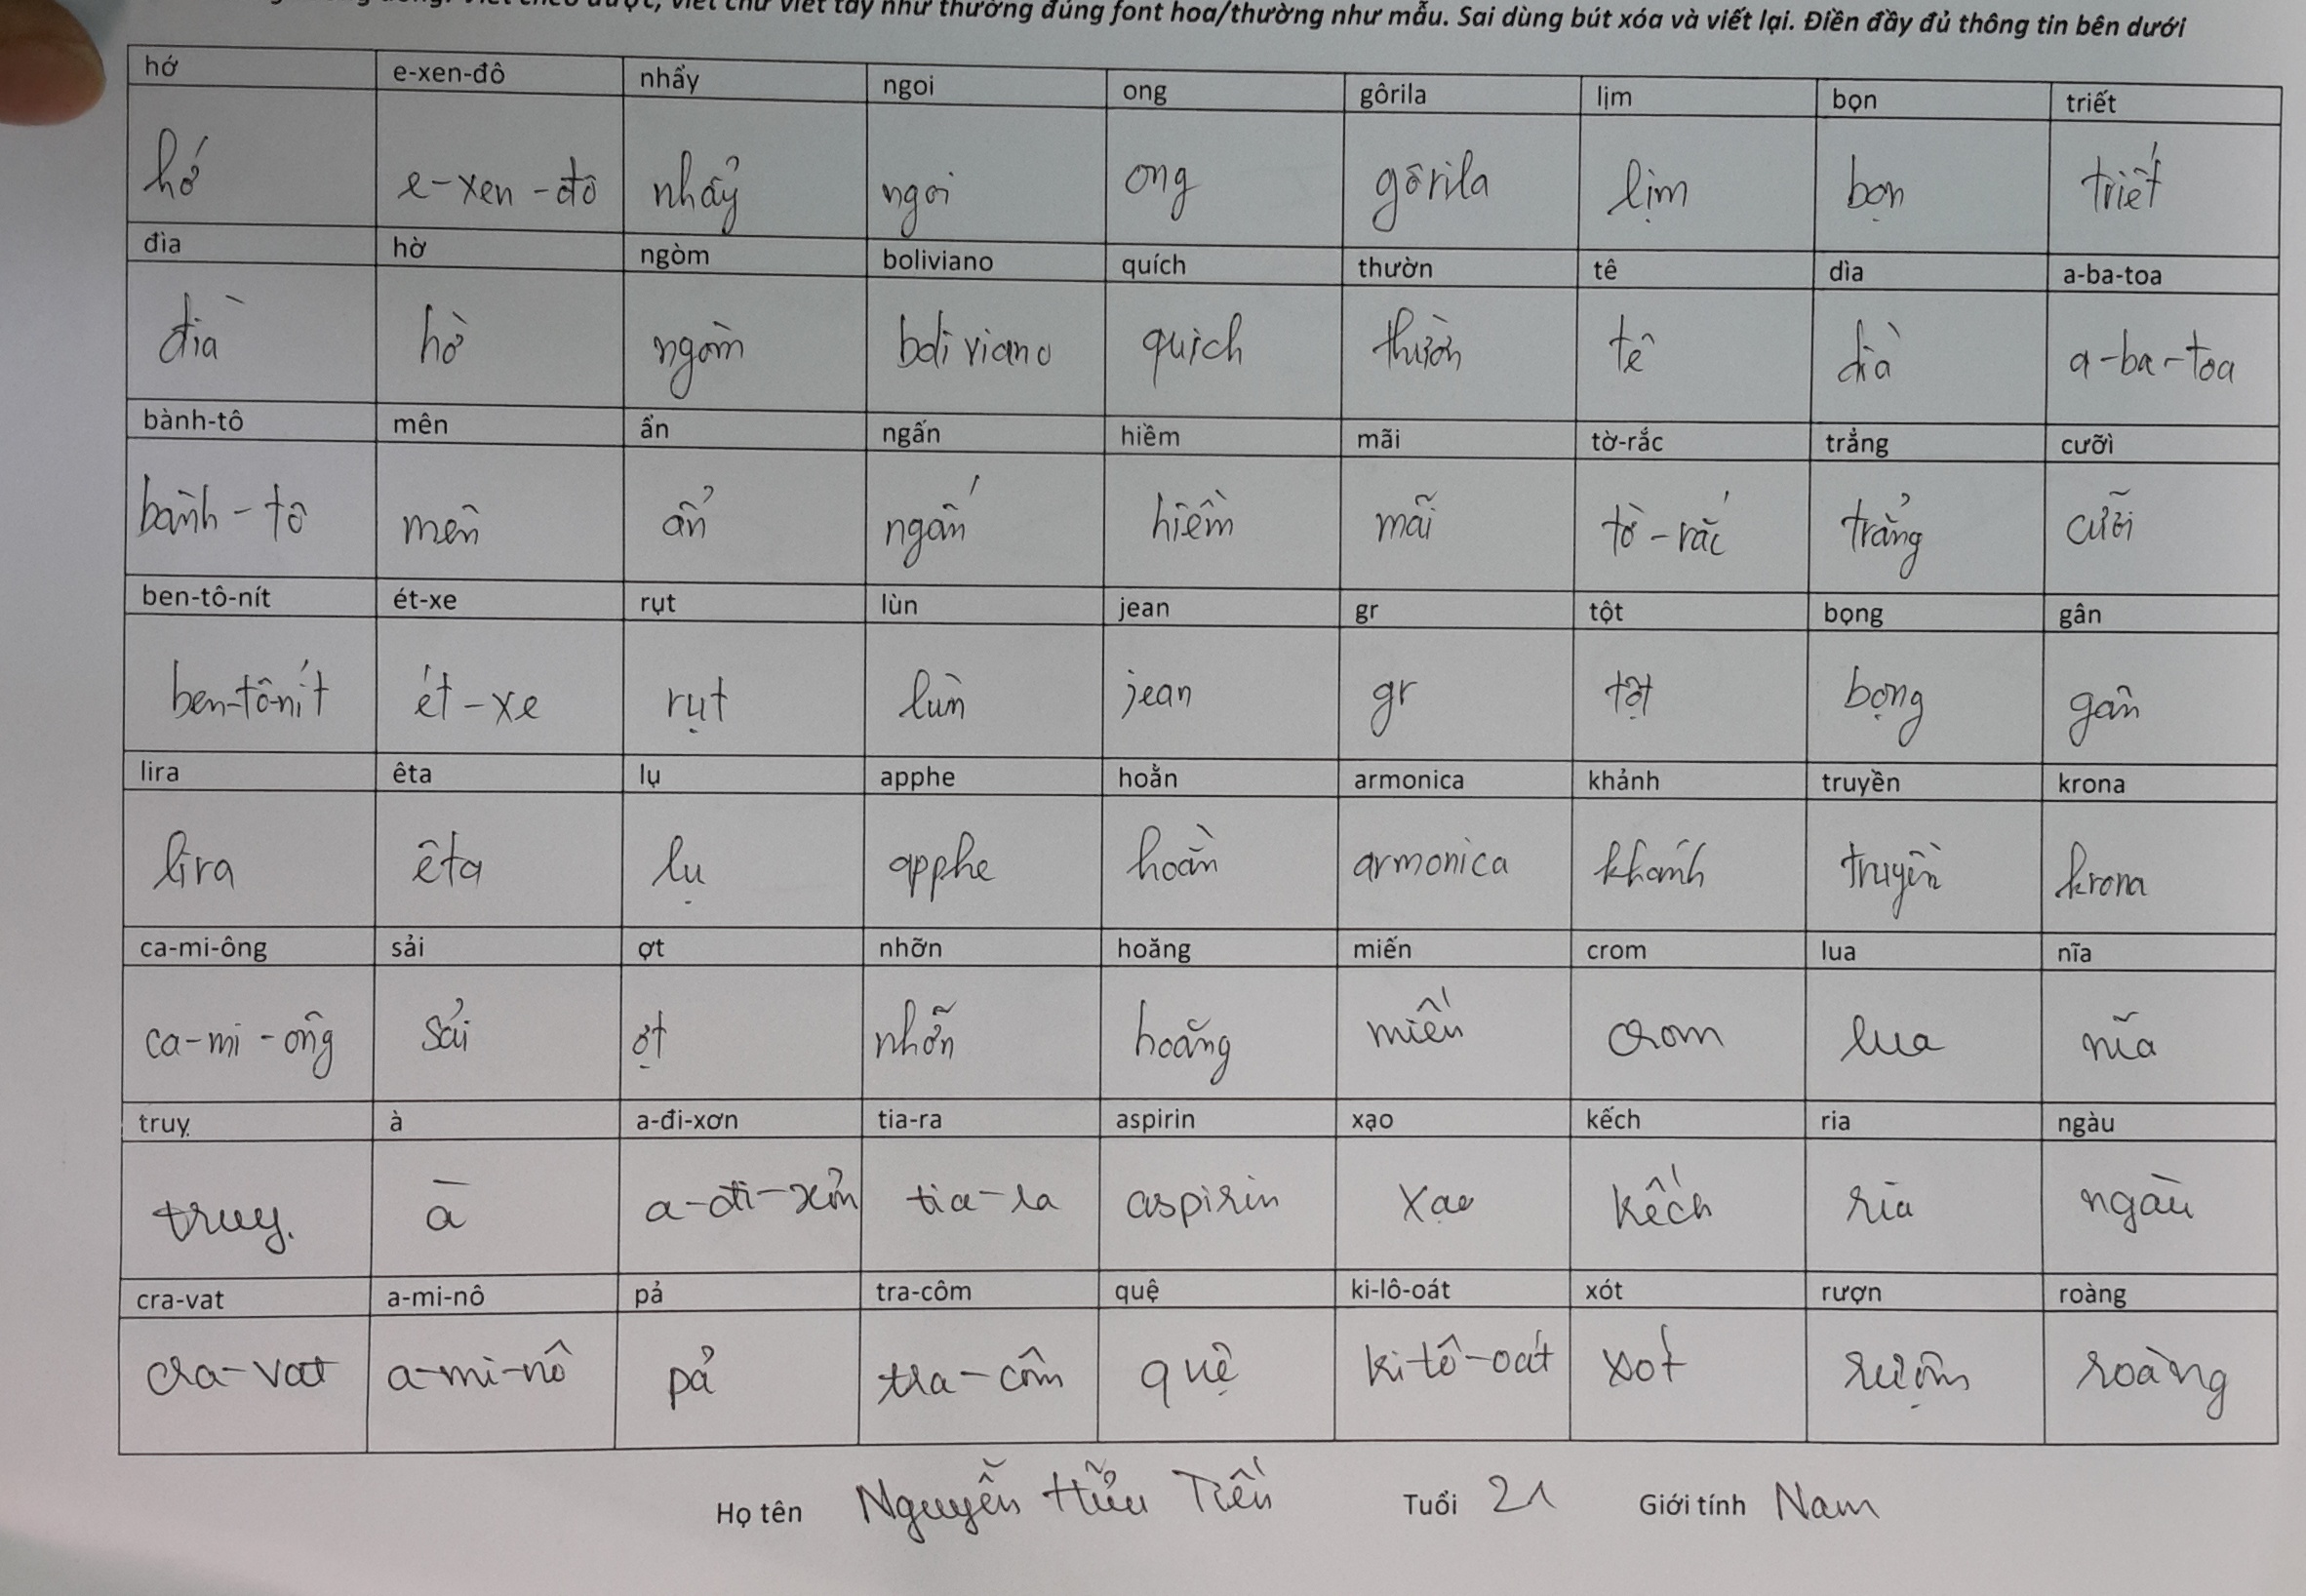 viết chữ viết tay như thường đúng font hoa/thường như mẫu. Sai dùng bút xóa và viết lại. Điền đầy đủ thông tin bên dưới
hớ e-xen-đô nhẩy ngoi ong gôrila lịm bọn triết
hớ e-xen-đô nhẩy ngoi ong gôrila lịm bọn triết
đìa hờ ngòm boliviano quích thườn tê dìa a-ba-toa
đìa hờ ngòm boliviano quich thườn tê dìa a-ba-toa
bành-tô mên ẩn ngấn hiềm mãi tờ-rắc trẳng cưỡi
bành-tô mên ẩn ngấn hiềm mãi tờ-rắc trẳng cưỡi
ben-tô-nít ét-xe rụt lùn jean gr tột bọng gân
ben-tô-nít ét-xe rụt lùn jean gr tột bọng gân
lira êta lụ apphe hoằn armonica khảnh truyền krona
lira êta lụ apphe hoằn armonica khánh truyền krona
ca-mi-ông sải ợt nhỡn hoăng miến crom lua nĩa
ca-mi-ông sải ợt nhỡn hoăng miến crom lua nĩa
truỵ à a-đi-xơn tia-ra aspirin xạo kếch ria ngàu
truy. à a-đi-xơn tia-ra aspirin xạo kếch ria ngàu
cra-vat a-mi-nô pả tra-côm quệ ki-lô-oát xót rượn roàng
cra-vat a-mi-nô pả tra-côm quệ ki-tô-oát xót rượn roàng
Họ tên Nguyễn Hữu Tiến Tuổi 21 Giới tính Nam